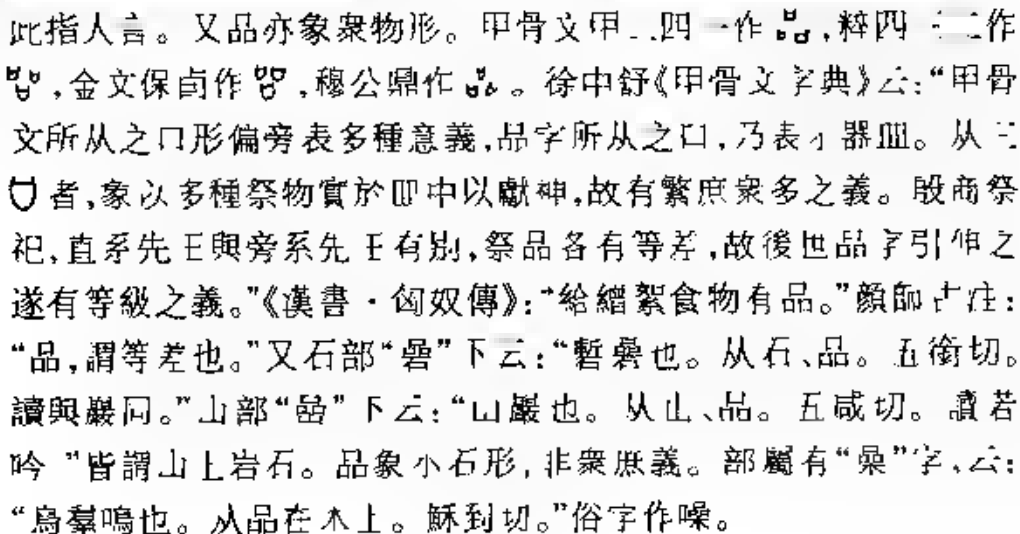 此指人言。又品亦象衆物形。甲骨文甲二四一作,粹四三二作
,金文保卣作,穆公鼎作。徐中舒《甲骨文字典》云:“甲骨
文所从之口形偏旁表多種意義,品字所从之口,乃表小器皿。从三
口者,象以多種祭物實於皿中以獻神,故有繁庶衆多之義。殷商祭
祀,直系先王與旁系先王有别,祭品各有等差,故後世品字引伸之
遂有等級之義。”《漢書·匈奴傳》:“給繒絮食物有品。”顔師古注:
“品,謂等差也。”又石部“碞”下云:“暫碞也。从石、品。五銜切。
讀與巖同。”山部“嵒”下云:“山巖也。从山、品。五咸切。讀若
吟。”皆謂山上岩石。品象小石形,非衆庶義。部屬有“喿”字,云:
“鳥羣鳴也。从品在木上。穌到切。”俗字作噪。